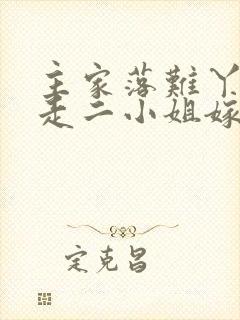 主家落難丫
走二小姐嫁
定克昌